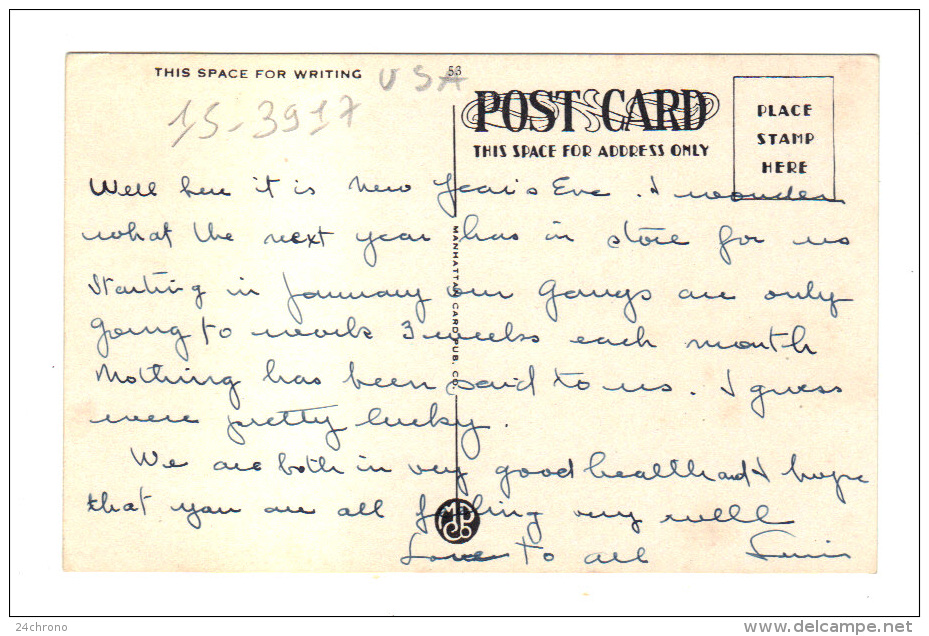 THIS SPACE FOR WRITING
USA
53
15-3917
POST CARD
THIS SPACE FOR ADDRESS ONLY
PLACE
STAMP
HERE
Well here it is New Year's Eve. I wonder
what the next year has in store for us
Starting in January our Gangs are only
going to work 3 weeks each month
Nothing has been said to us. I guess
were pretty lucky.
We are both in very good health and I hope
that you are all feeling very well
Love to all
MANHATTAN CARD PUB. CO.
24chrono
www.delcampe.net